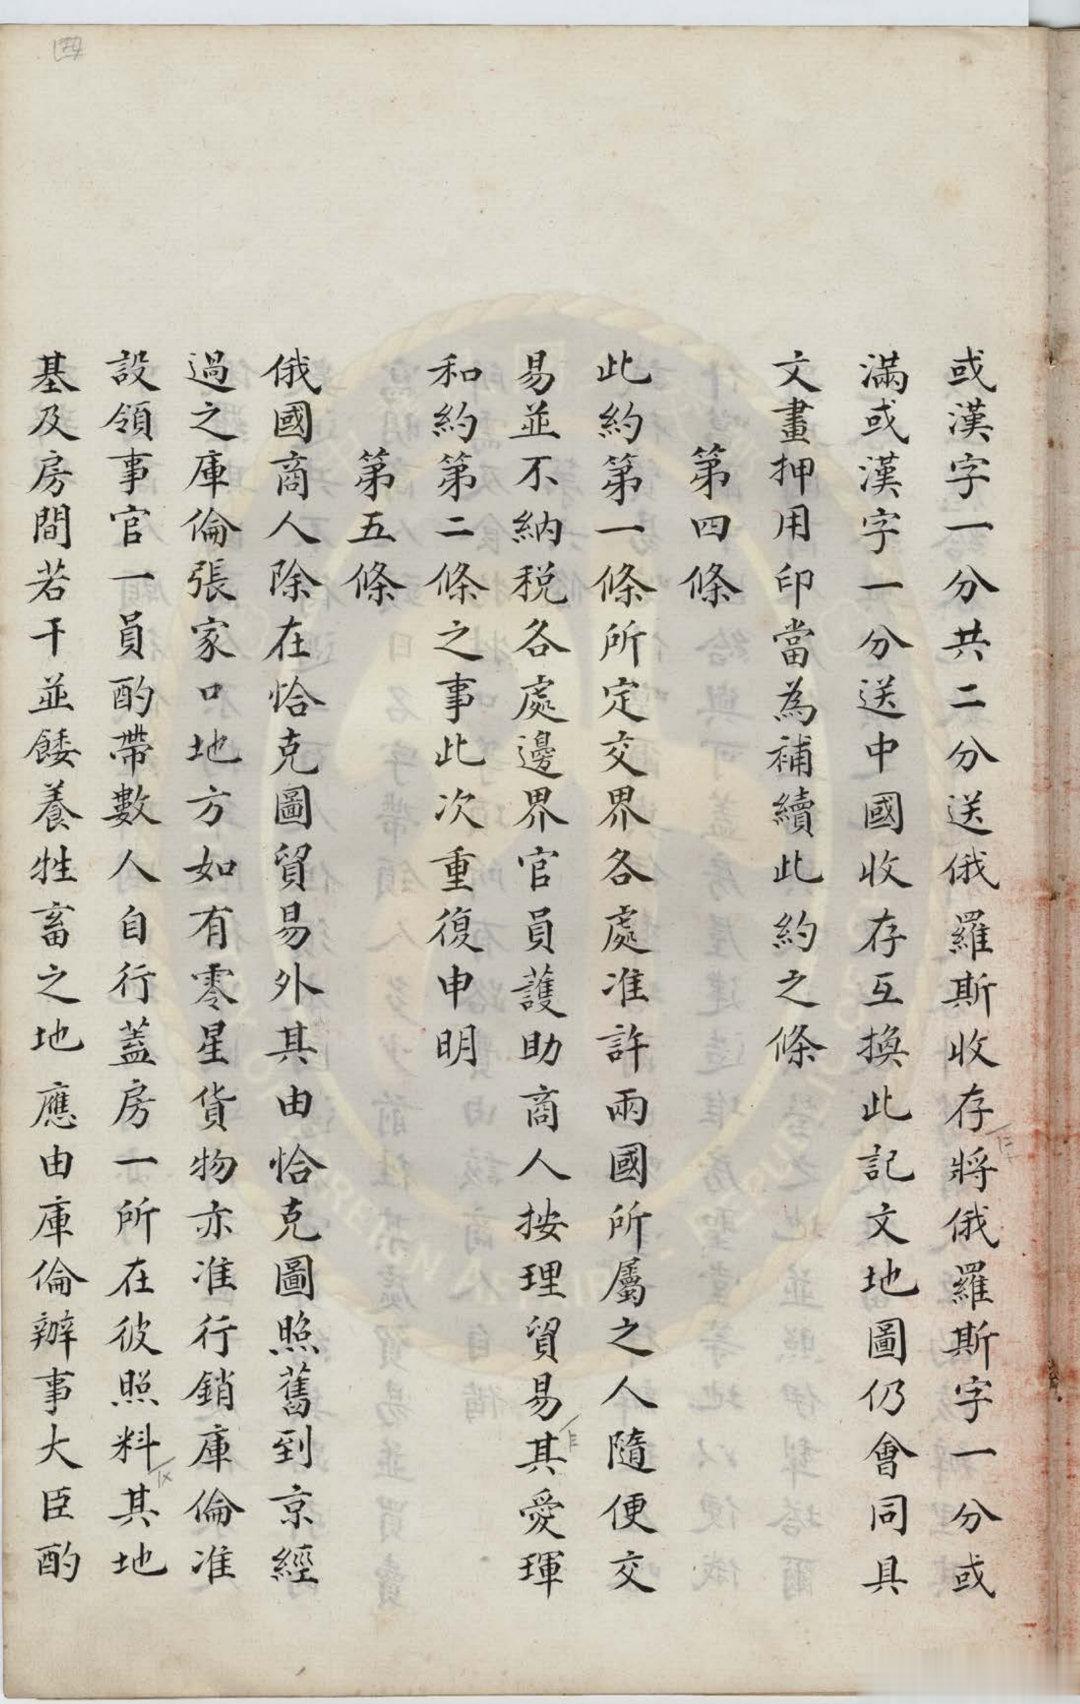 或漢字一分共二分送俄羅斯收存將俄羅斯字一分或
滿或漢字一分送中國收存互換此記文地圖仍會同具
文畫押用印當為補續此約之條
第四條
此約第一條所定交界各處准許兩國所屬之人隨便交
易並不納稅各處邊界官員護助商人按理貿易其愛琿
和約第二條之事此次重復申明
第五條
俄國商人除在恰克圖貿易外其由恰克圖照舊到京經
過之庫倫張家口地方如有零星貨物亦准行銷庫倫准
設領事官一員酌帶數人自行蓋房一所在彼照料其地
基及房間若干並餧養牲畜之地應由庫倫辦事大臣酌